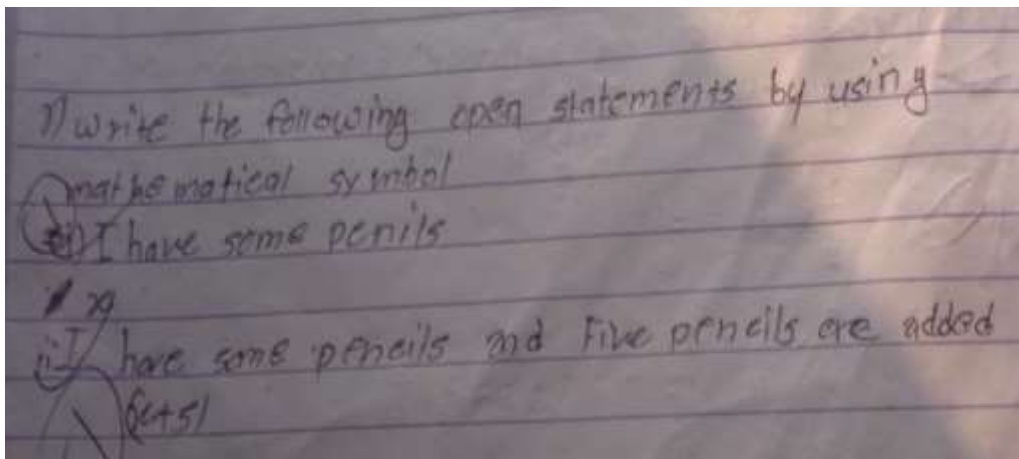 1) write the following open statements by using
mathematical symbol
i) I have some penils
x
ii) I have some pencils and Five pencils are added
(x+5)